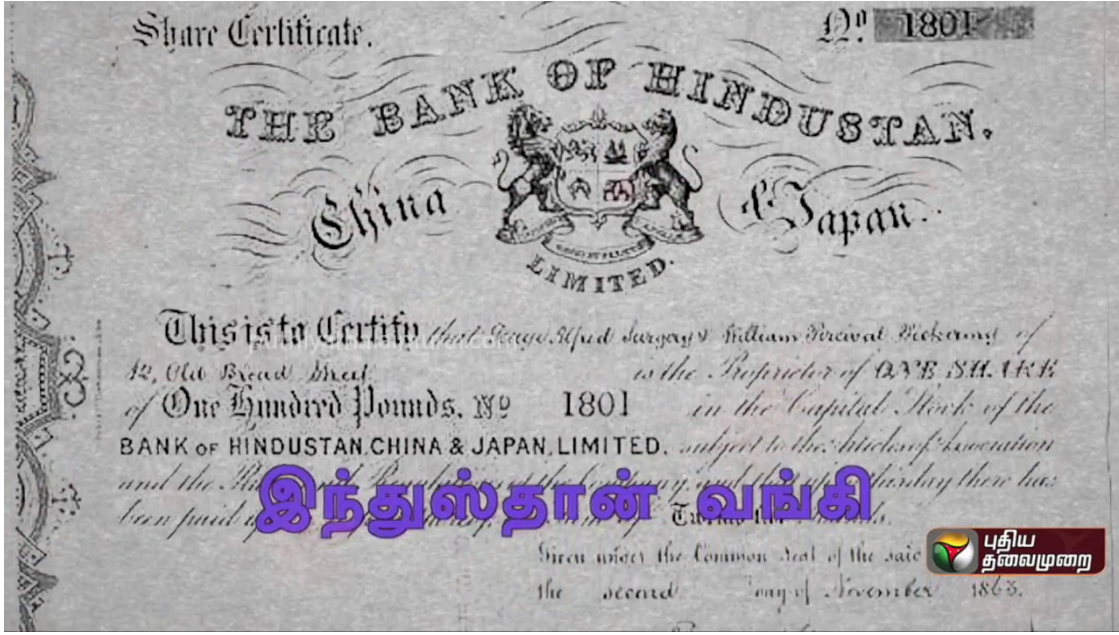 Share Certificate.
No 1801
THE BANK OF HINDUSTAN,
China & Japan.
LIMITED.
This is to Certify that George Alfred Surgey & William Percival Pickering of
12, Old Broad Street is the Proprietor of ONE SHARE
of One Hundred Pounds, No 1801 in the Capital Stock of the
BANK OF HINDUSTAN, CHINA & JAPAN, LIMITED, subject to the Articles of Association
and the day there has
been paid
இந்துஸ்தான் வங்கி
Given under the Common Seal of the said
the second day of November 1863.
புதிய
தலைமுறை